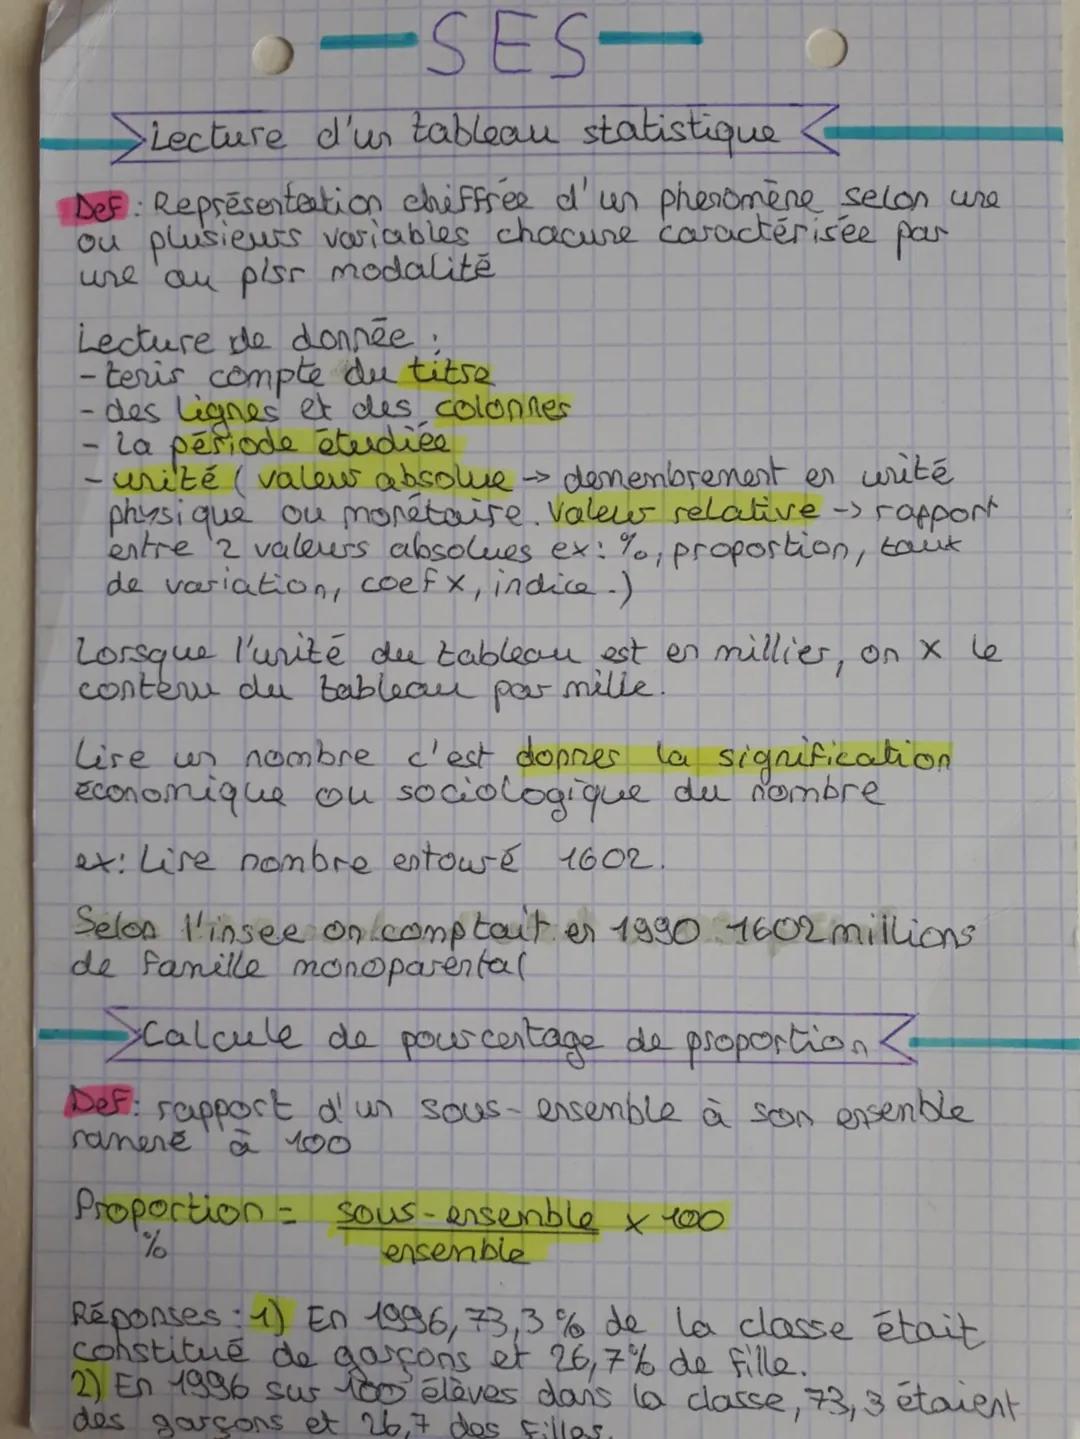 SES
Lecture d'un tableau statistique
Def : Représentation chiffrée d'un phenomène selon une
ou plusieurs variables chacune caractérisée par
une ou plsr modalité
Lecture de donnée :
- tenir compte du titre
- des lignes et des colonnes
- la période étudiée
- unité ( valeur absolue -> demembrement en unité
physique ou monétaire. Valeur relative -> rapport
entre 2 valeurs absolues ex : %, proportion, taux
de variation, coef x, indice.)
Lorsque l'unité du tableau est en millier, on x le
contenu du tableau par mille.
Lire un nombre c'est donner la signification
économique ou sociologique du nombre
ex: Lire nombre entouré 1602.
Selon l'insee on comptait en 1990 1602 millions
de famille monoparental
Calcule de pourcentage de proportion
Def : rapport d'un sous-ensemble à son ensemble
ramené à 100
Proportion = sous-ensemble x 100
% ensemble
Réponses : 1) En 1996, 73,3 % de la classe était
constitué de garçons et 26,7% de fille.
2) En 1996 sur 100 élèves dans la classe, 73,3 étaient
des garçons et 26,7 des filles.